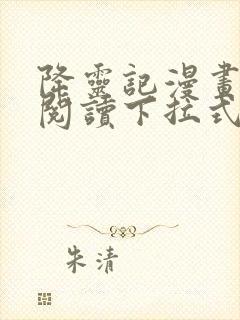 降靈記漫畫
閱讀下拉式
朱清